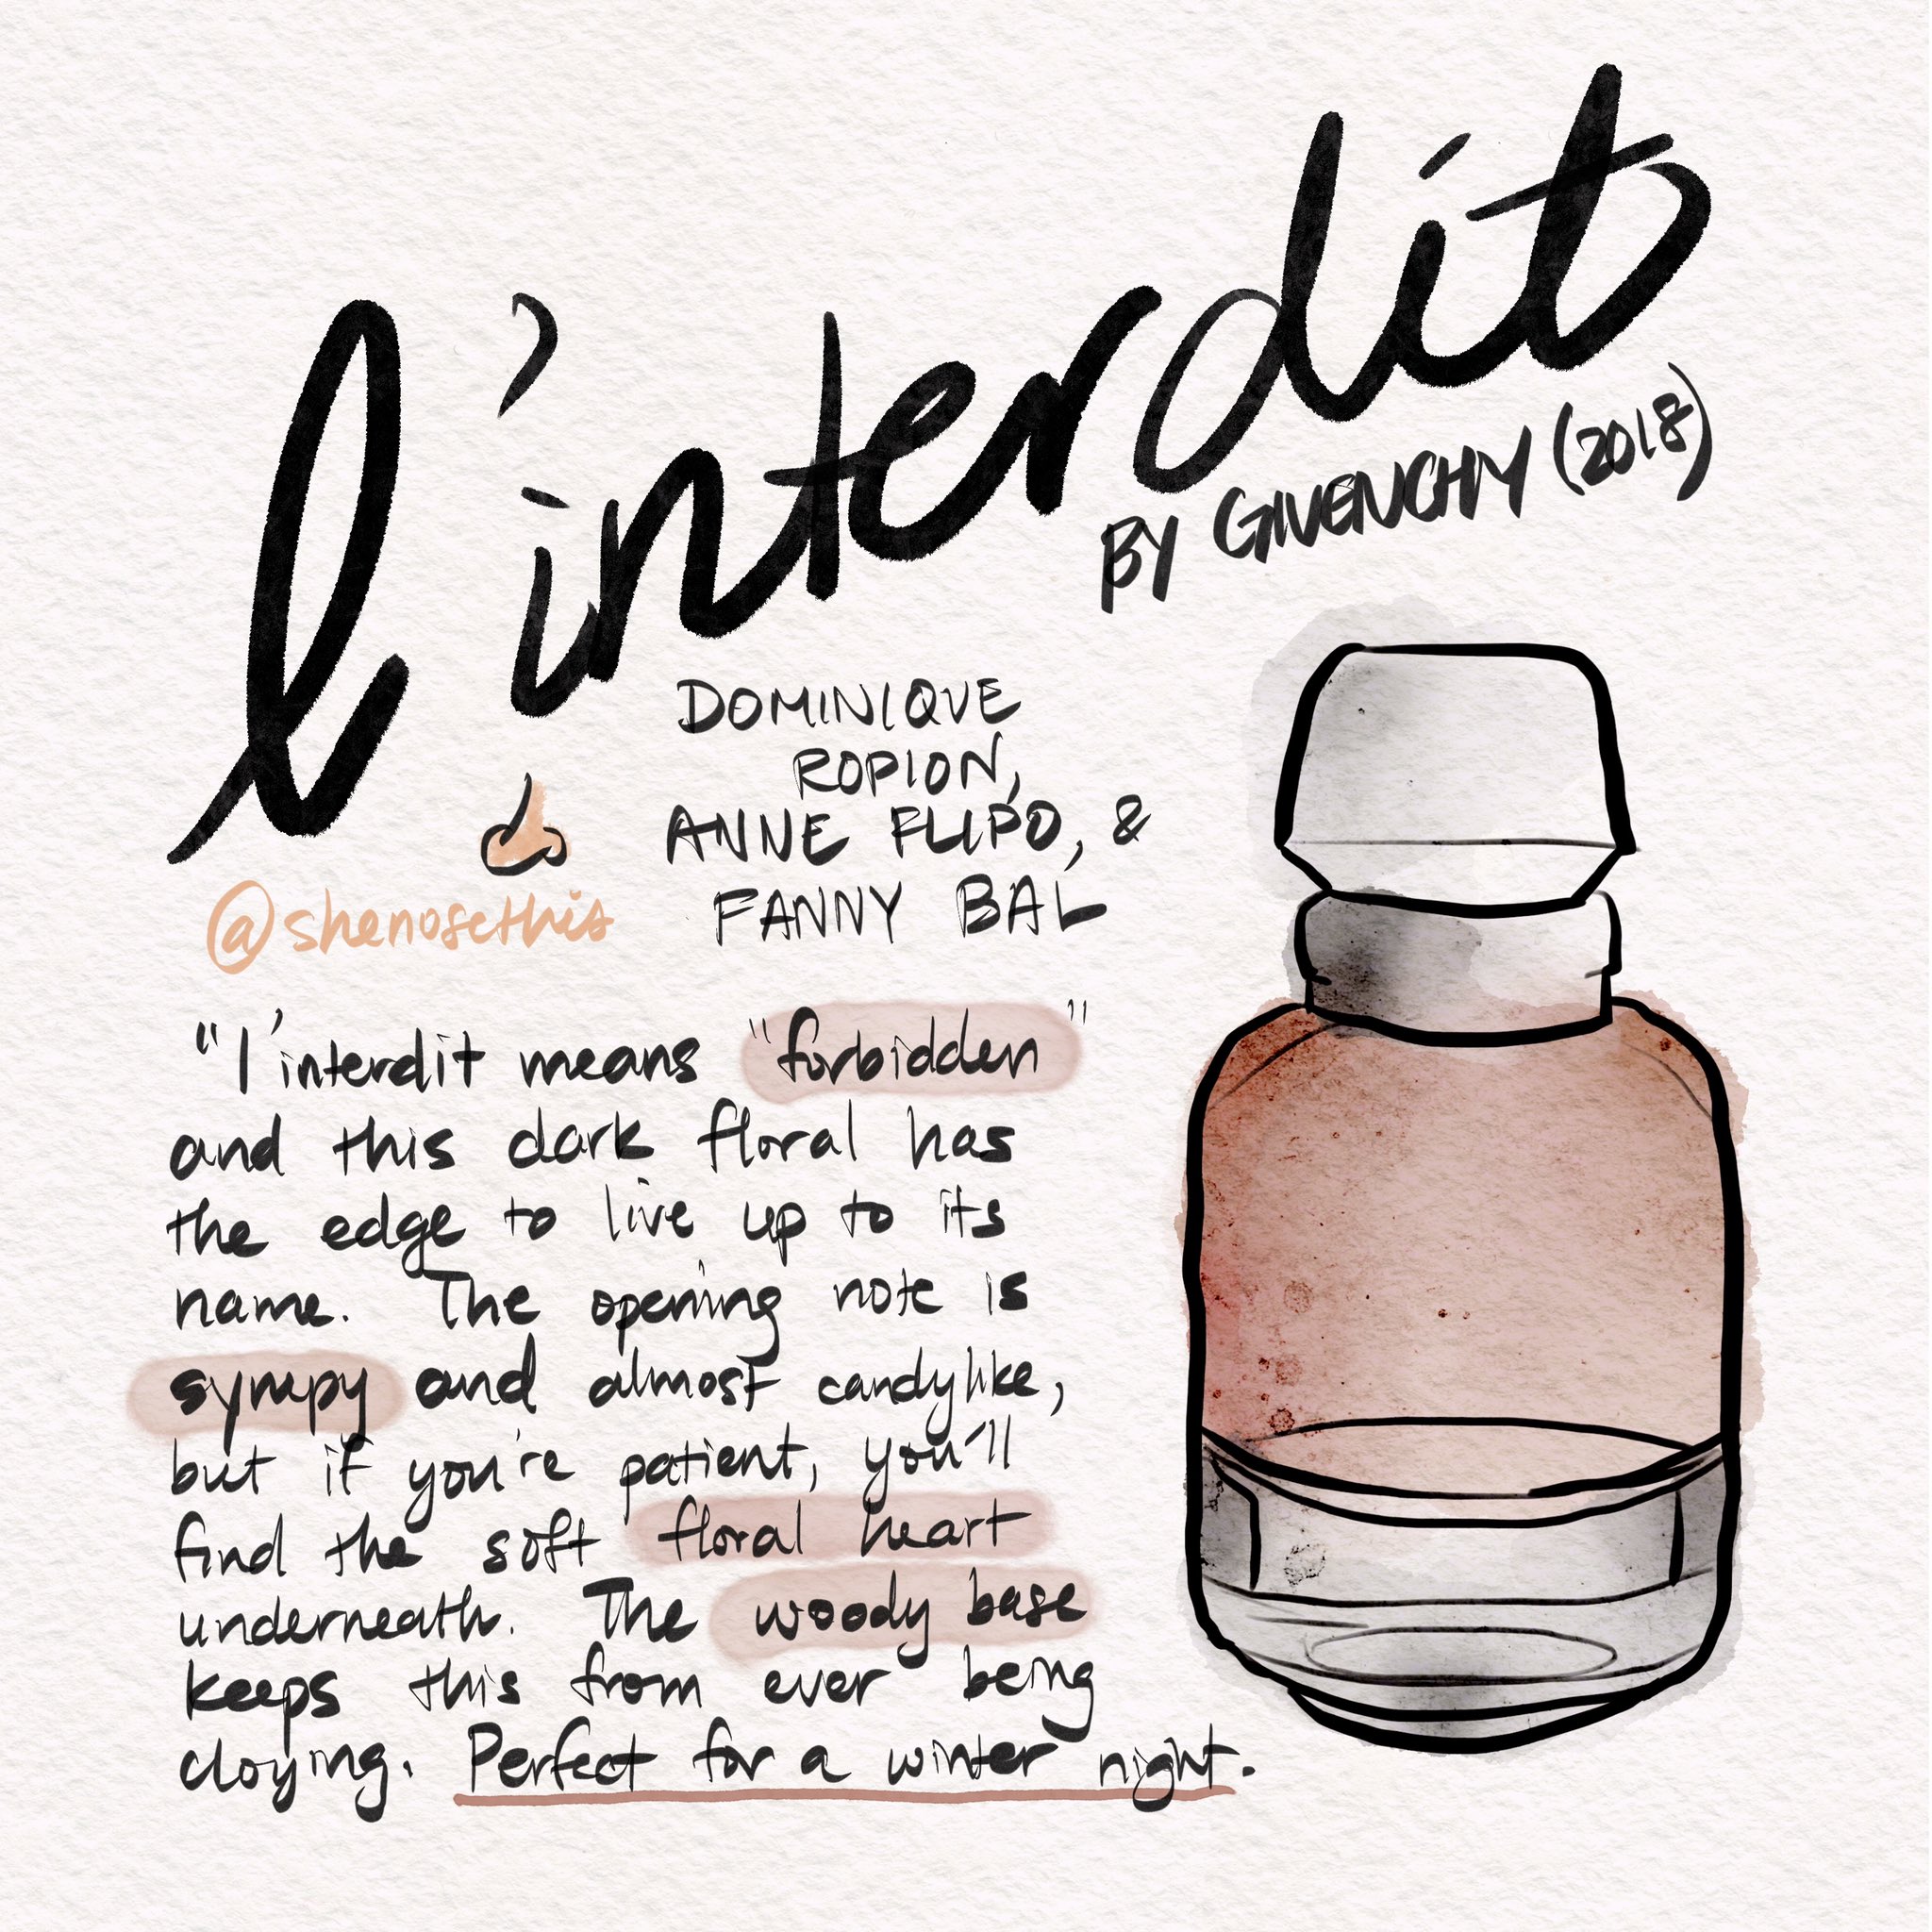 l'interdit
BY GIVENCHY (2018)
DOMINIQUE
ROPION,
ANNE FLIPO, &
FANNY BAL
@shenosethis
"l'interdit means "forbidden"
and this dark floral has
the edge to live up to its
name. The opening note is
syrupy and almost candylike,
but if you're patient, you'll
find the soft floral heart
underneath. The woody base
keeps this from ever being
cloying. Perfect for a winter night.